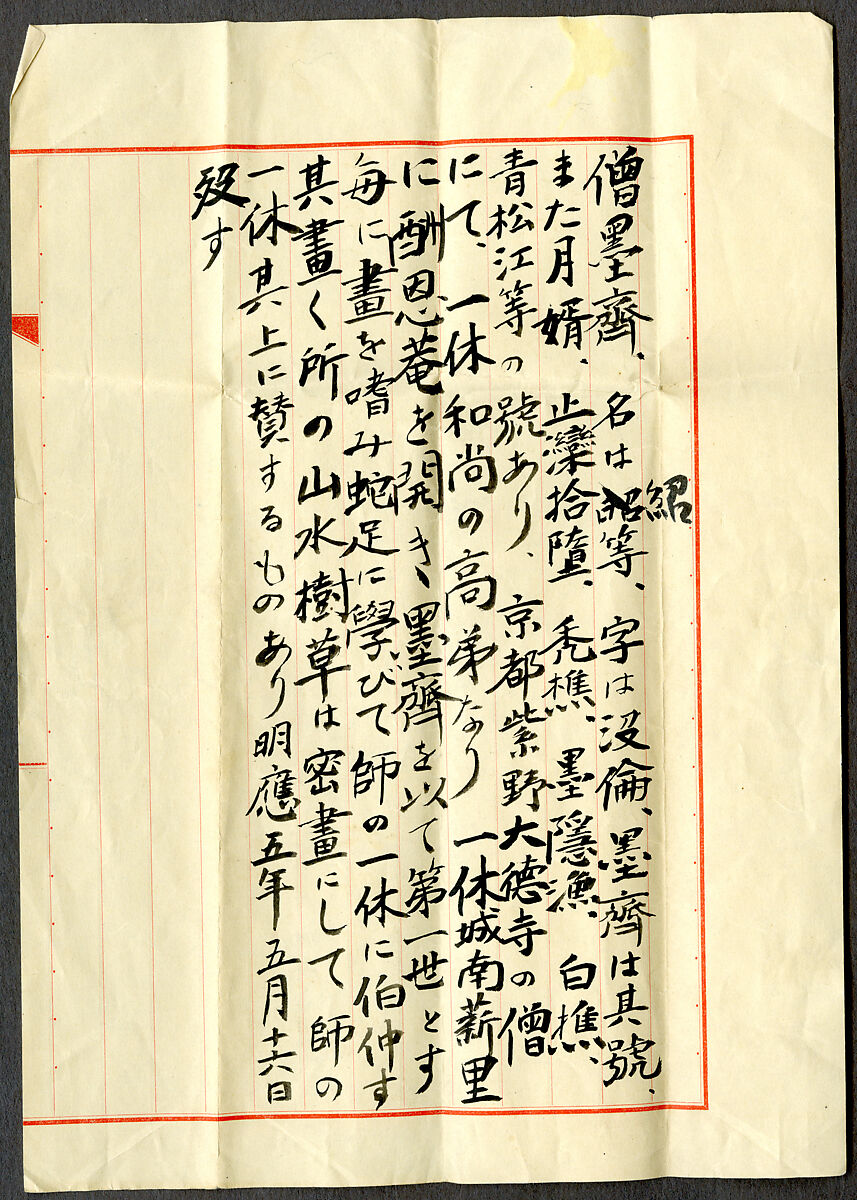 僧墨齊、名は紹等、字は没倫、墨齊は其號、
また月婿、止濼拾墮、禿樵、墨隱漁、白樵、
青松江等の號あり、京都紫野大德寺の僧
にて、一休和尚の高弟なり 一休城南薪里
に酬恩菴を開き、墨齊を以て第一世とす
每に畫を嗜み蛇足に學びて師の一休に伯仲す
其畫く所の山水樹草は密畫にして師の
一休其上に賛するものあり明應五年五月十六日
歿す